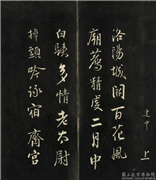 建中 上
洛陽城百花風
廟薦猶虔二月中
白多情老太尉
掉頭吟詠宿齋宮